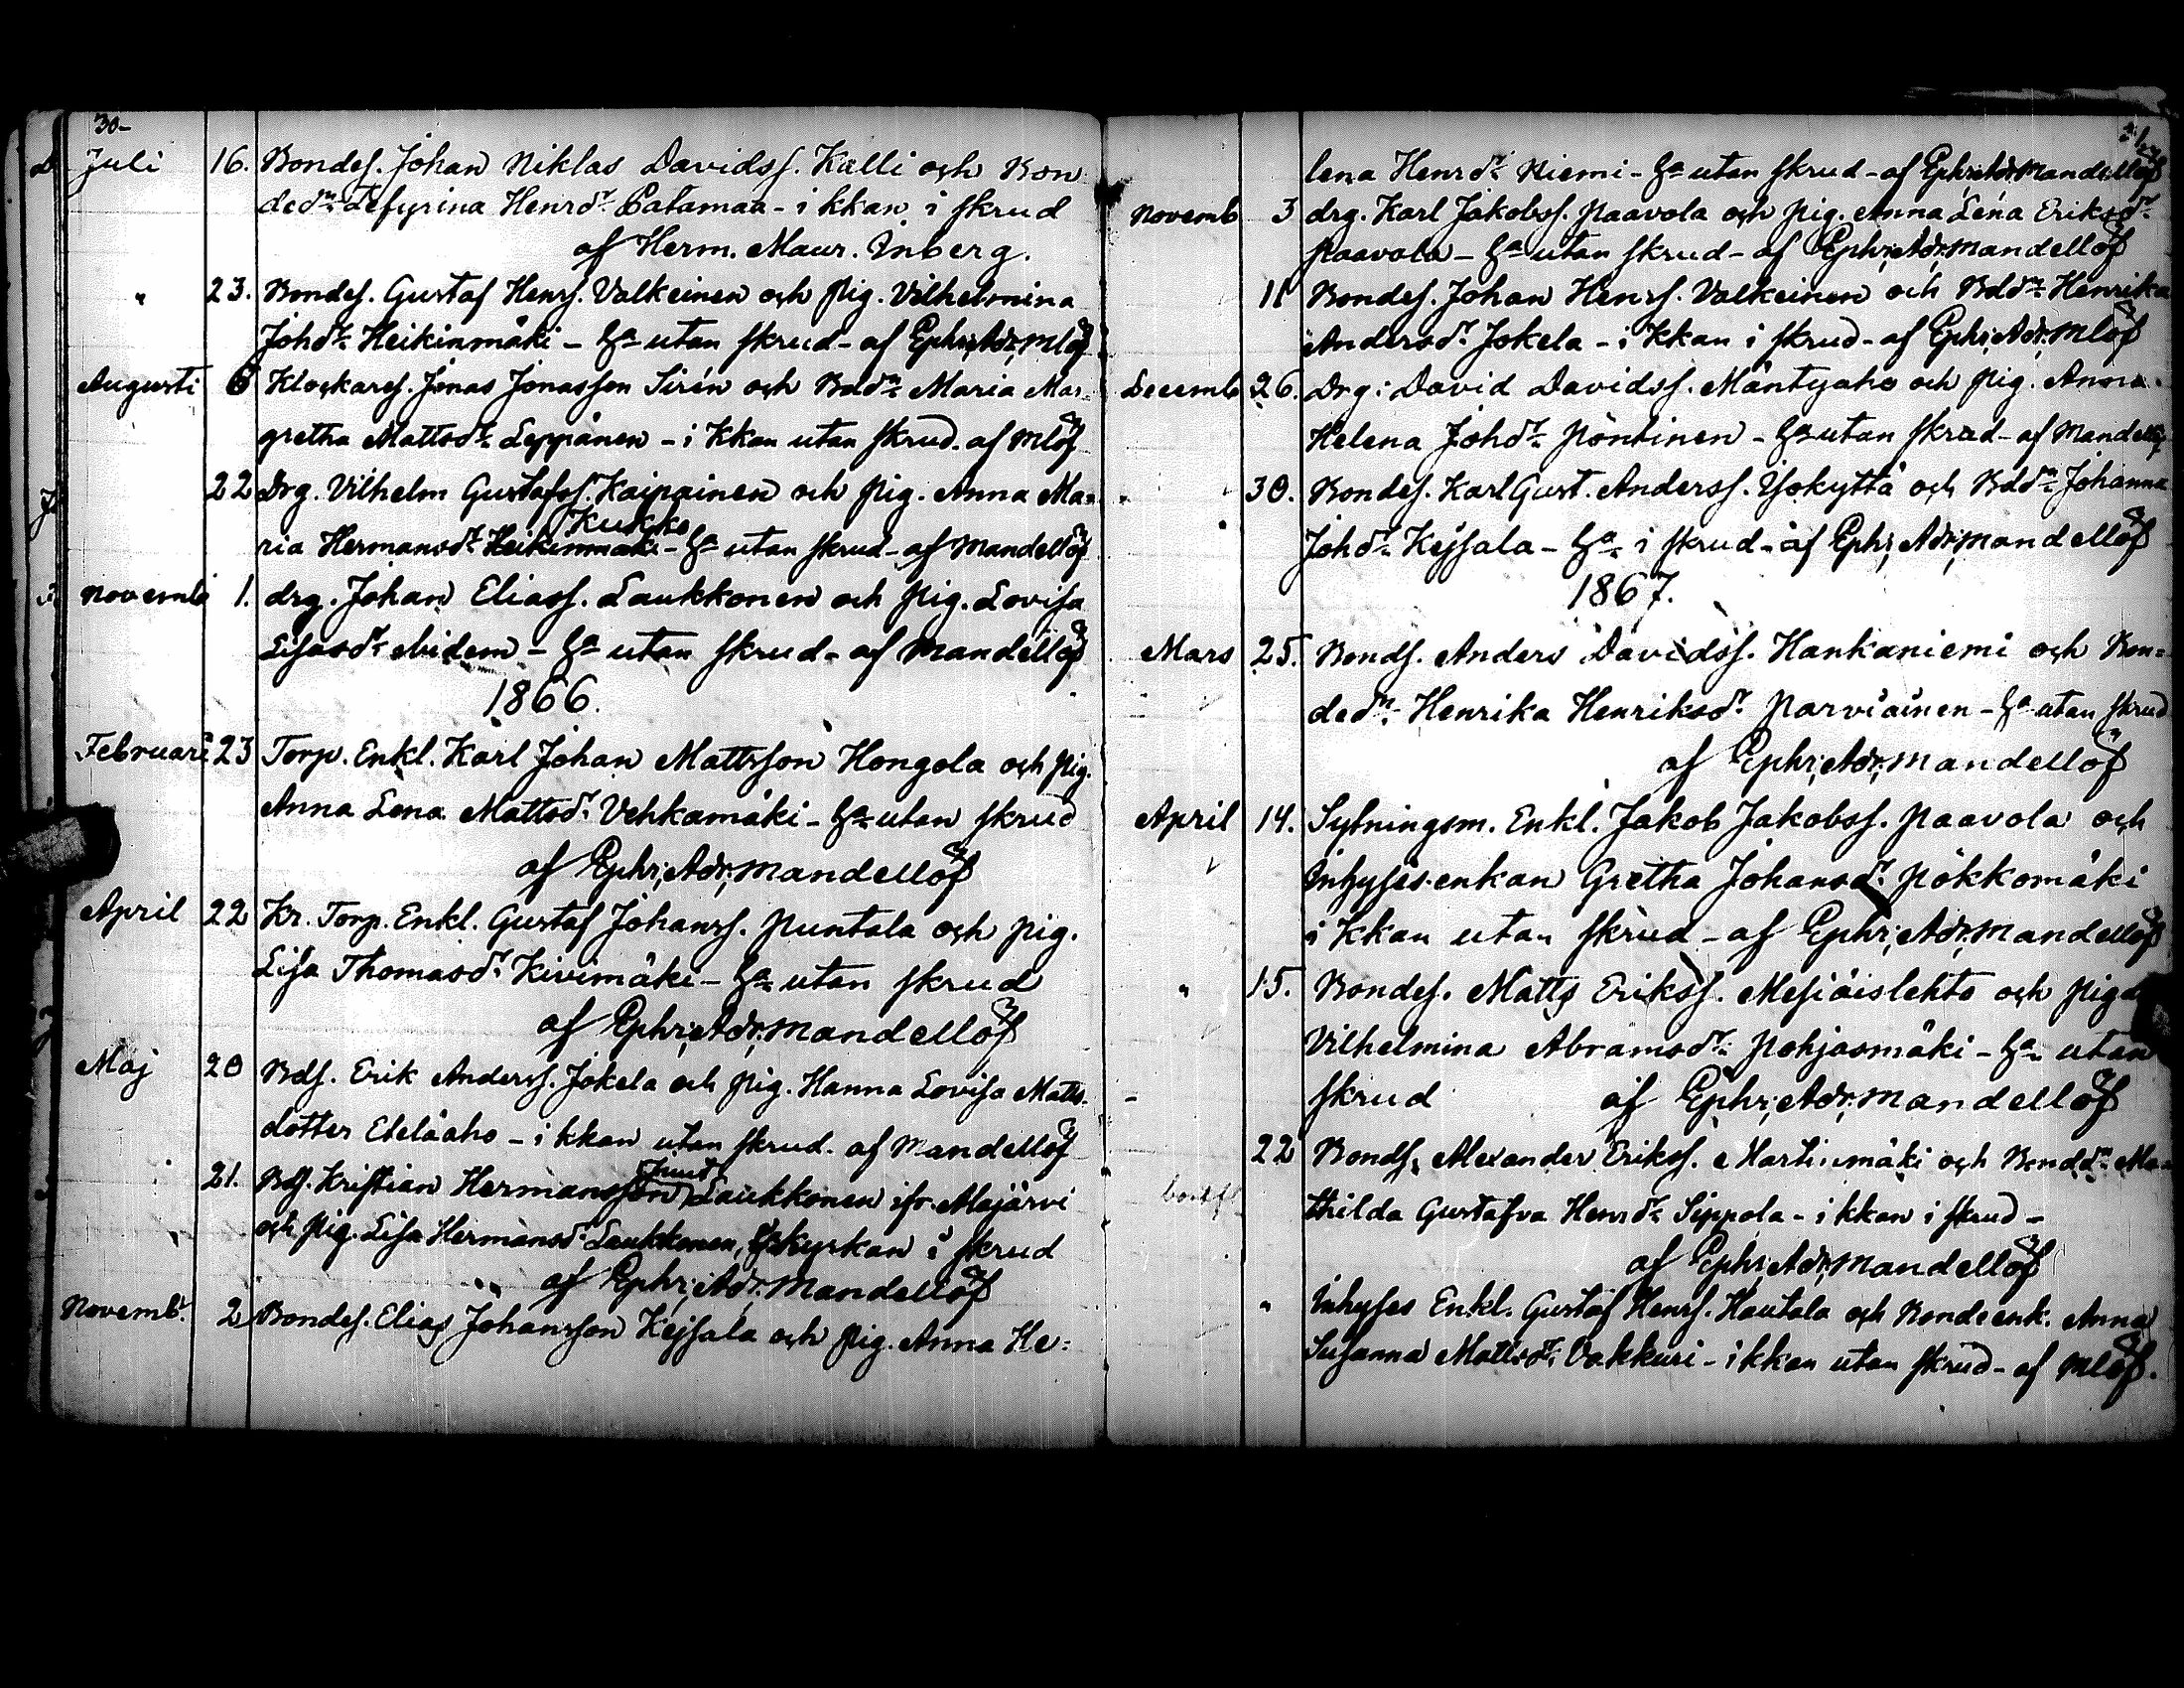 30-
Juli 16. Bondes. Johan Niklas Davidss. Kalli och Bon
dedr Sefyrina Henrdr Patamaa - i kkan i skrud
af Herm. Maur. Inberg.
" 23. Bondes. Gustaf Henrs. Valkeinen och Pig. Vilhelmina
Johdr Heikinmäki - Ha utan skrud - af Ephr. Adr. Mlöf
Augusti 6 Klockars. Jonas Jonasson Sirén och Bddr Maria Mar-
gretha Mattsdr Leppänen - i Kkan utan skrud - af Mlöf
22 Drg. Vilhelm Gustafss. Kaipainen och Pig. Anna Ma-
Kukko
ria Hermansdr Heikinmäki - Ha utan skrud - af Mandellöf
Novemb 1. drg. Johan Eliass. Laukkonen och Pig. Lovisa
ibidem - Ha utan skrud - af Mandellöf
1866.
Februari 23 Torp. Enkl. Karl Johan Mattsson Hongola och Pig.
Anna Lena Mattsdr Vehkamäki - Ha utan skrud
af Ephr. Adr. Mandellöf
April 22 Kr. Torp. Enkl. Gustaf Johanss. Puntala och Pig.
Lisa Thomasdr Kivimäki - Ha utan skrud
af Ephr. Adr. Mandellöf
Maj 20 Bds. Erik Anderss. Jokela och Pig. Hanna Lovisa Matts-
dotter Eteläaho - i kkan utan skrud - af Mandellöf
21. Bds. Kristian Hermansson Laukkonen ifr. Alajärvi
och Pig. Lisa Hermansdr Laukkonen, kyrkan i skrud
af Ephr. Adr. Mandellöf
Novembr 2 Bondes. Elias Johansson Kejsala och Pig. Anna He-
lena Henrdr Niemi - Ha utan skrud - af Ephr. Adr. Mandellöf
Novemb 3 drg. Karl Jakobss. Paavola och Pig. Anna Lena Eriksdr
Paavola - Ha utan skrud - af Ephr. Adr. Mandellöf
11 Bondes. Johan Henrs. Valkeinen och Bddr Henrika
Andersdr Jokela - i Kkan i skrud - af Ephr. Adr. Mlöf
Decemb 26. Drg. David Davidss. Mäntyaho och Pig. Anna
Helena Johdr Pöntinen - Ha utan skrud - af Mandellöf
" 30. Bondes. Karl Gust. Anderss. Isokyttä och Bddr Johanna
Johdr Kejsala - Ha i skrud - af Ephr. Adr. Mandellöf
1867.
Mars 25. Bonds. Anders Davidss. Hankaniemi och Bon-
dedr Henrika Henriksdr Parviainen - Ha utan skrud
af Ephr. Adr. Mandellöf
April 14. Sytningsm. Enkl. Jakob Jakobss. Paavola och
Inhyses enkan Gretha Johansdr Pökkomäki
i Kkan utan skrud - af Ephr. Adr. Mandellöf
" 15. Bondes. Matts Erikss. Mesiäislehto och Piga
Vilhelmina Abramsdr Pohjasmäki - Ha utan
skrud af Ephr. Adr. Mandellöf
22 Bonds. Alexander Erikss. Martinmäki och Bonddr Ma-
thilda Gustafva Henrdr Sippola - i kkan i skrud -
af Ephr. Adr. Mandellöf
" Inhyses Enkl. Gustaf Henrs. Hautala och Bondeenk. Anna
Susanna Mattsdr Vakkuri - i kkan utan skrud - af Mlöf.